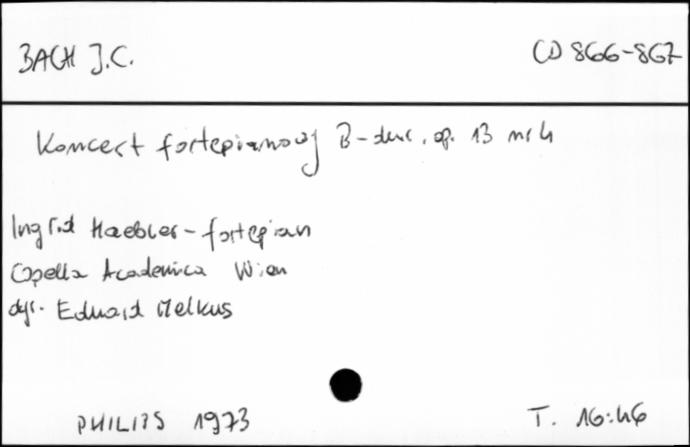 BACH J.C.
CD 866-867
Koncert fortepianowy B-dur, op. 13 nr 4
Ingrid Haebler - fortepian
Capella Academica Wien
dyr. Eduard Melkus
PHILIPS 1973
T. 16:46